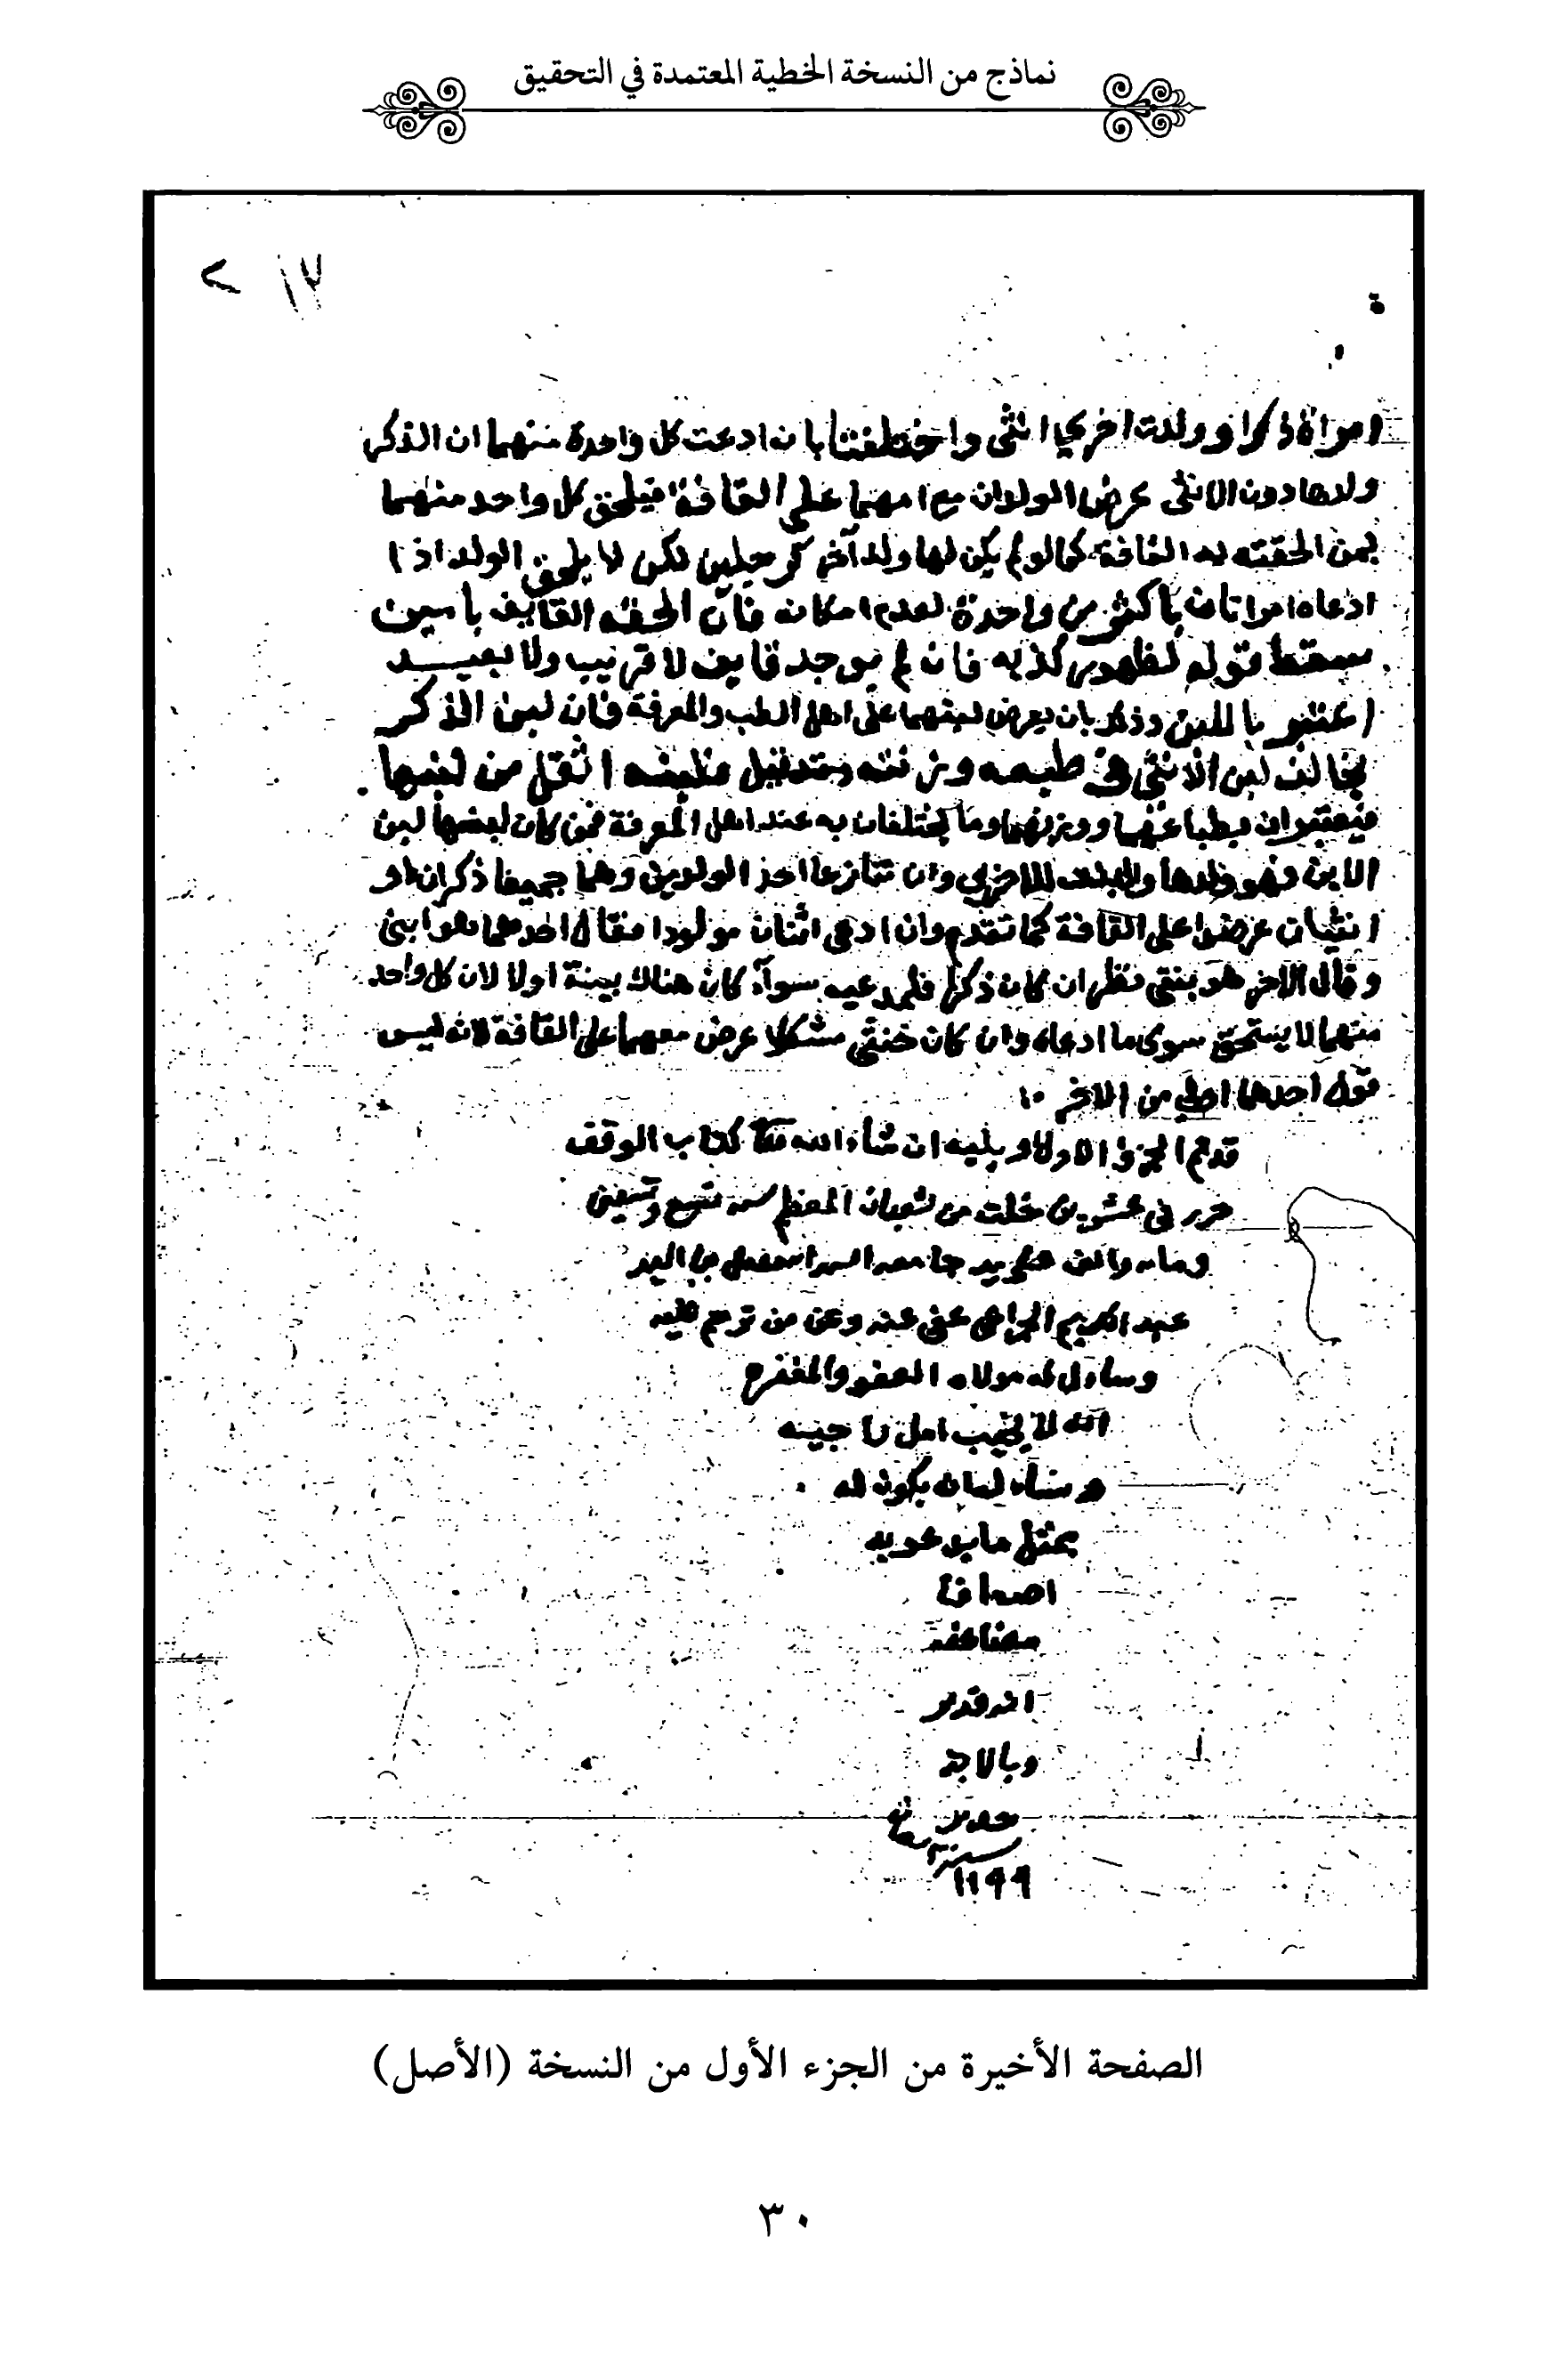 نماذج من النسخة الخطية المعتمدة في التحقيق
امراة ذكرا وولدت اخرى انثى واختلفتا بان ادعت كل واحدة منهما ان الذكر
ولدها دون الانثى عرض الولدان مع امهما على القافة فيلحق كل واحد منهما
بمن الحقته به القافة كما لو لم يكن لها ولد آخر كرجلين لكن لا يلحق الولد اذا
ادعاه امراتان باكثر من واحدة لعدم امكانه فان الحقه القايف بامين
سقط قوله لظهور كذبه فان لم يوجد قايف لا قريب ولا بعيد
اعتبر باللبن وذلك بان يعرض لبنهما على اهل الطب والمعرفة فان لبن الذكر
يخالف لبن الانثى في طبعه وزنته وقد قيل ان لبنه اثقل من لبنها
فيعتبران بطباعهما ووزنهما وما يختلفان به عند اهل المعرفة فمن كان لبنها لبن
الابن فهو ولدها والبنت للاخرى وان تنازعا احد الولدين وهما جميعا ذكران او
انثيان عرضوا على القافة كما تقدم وان ادعى اثنان مولودا فقال احدهما هو ابني
وقال الاخر هو بنتي نظر ان كان ذكرا فلمدعيه سواء كان هناك بينة اولا لان كل واحد
منهما لا يستحق سوى ما ادعاه وان كان خنثى مشكلا عرض معهما على القافة لانه ليس
قول احدهما اولى من الاخر
قد تم الجزؤ الاول ويليه ان شاء الله كتاب الوقف
حرر في عشرين خلت من شعبان المعظم سنه تسع وتسعين
ومايه والف على يد جامعه
عبد الكريم الجراعي عفى عنه وعن من ترحم عليه
وسأل له مولاه العفو والمغفره
انه لا يخيب امل راجيه
بكون له
بمثل ما يدعو به
اضعافا
مضاعفة
انه قدير
وبالاجابة
جدير
سنة
١١٩٩
الصفحة الأخيرة من الجزء الأول من النسخة (الأصل)
٣٠